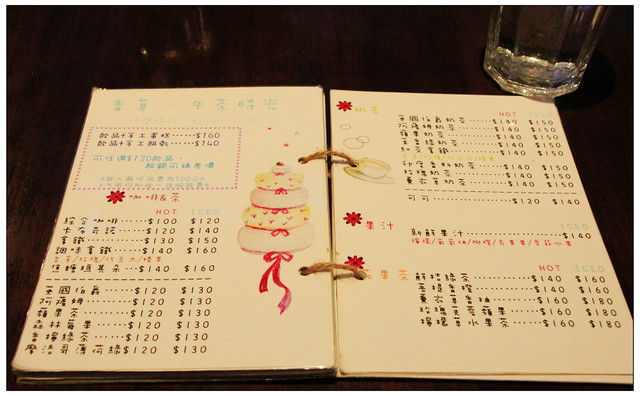 香草 午茶時光
飲品+手工蛋糕……$160
飲品+手工餅乾……$140
可任選$120飲品，
超額可補差價
咖啡&茶
HOT ICED
綜合咖啡……$100 $120
卡布奇諾……$120 $140
拿鐵……$130 $150
調味拿鐵……$140 $160
焦糖瑪其朵…$140 $160
英國伯爵……$120 $130
阿薩姆……$120 $130
蘋果茶……$120 $130
森林莓果……$120 $130
香檸綠茶……$120 $130
摩洛哥薄荷綠$120 $130
奶茶
HOT ICED
英國伯爵奶茶……$140 $150
阿薩姆奶茶……$140 $150
蘋果奶茶……$140 $150
$140 $150
$140 $150
印度香料奶茶……$140 $150
玫瑰奶茶……$140 $150
薰衣草奶茶……$140 $150
可可……$120 $140
果汁
ICED
新鮮果汁……$140
花果茶
HOT ICED
鮮桔綠茶……$140 $160
$140 $160
$160 $180
$160 $180
檸檬草水果茶……$160 $180